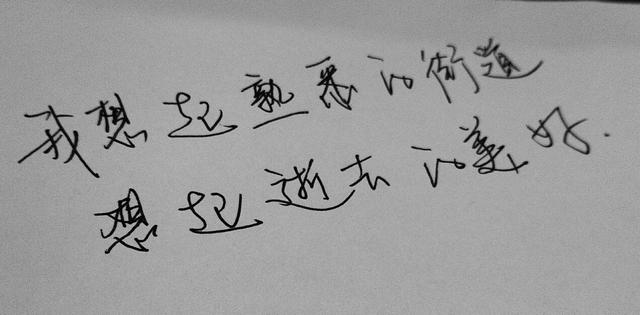 我想起熟悉的街道
想起逝去的美好.